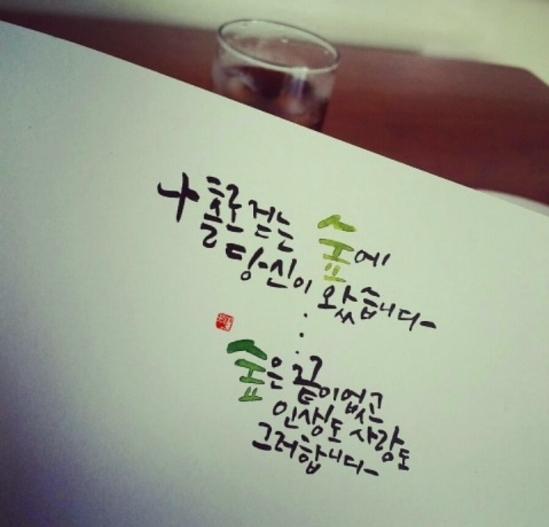 나 홀로 걷는 숲에
당신이 왔습니다
숲은 끝이 없고
인생도 사랑도
그러합니다